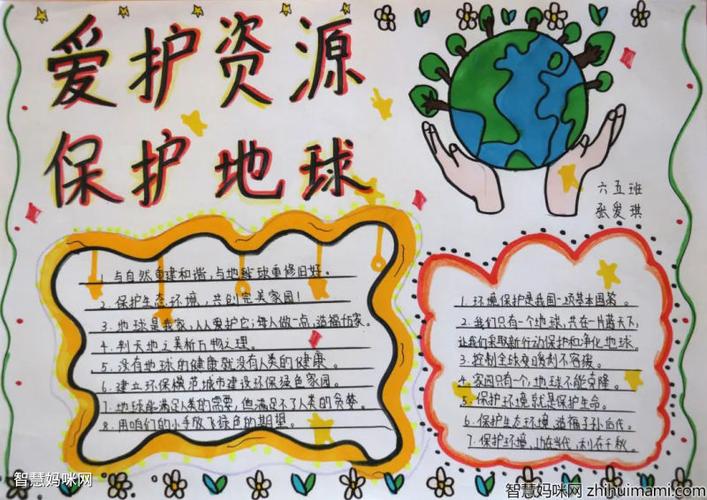 爱护资源
保护地球
六五班
张爱琪
1. 与自然重建和谐,与地球重修旧好。
2. 保护生态环境,共创完美家园!
3. 地球是我家,人人爱护它;每人做一点,造福你家。
4. 判天地之美析万物之理。
5. 没有地球的健康就没有人类的健康。
6. 建立环保模范城市建设环保绿色家园。
7. 地球能满足人类的需要,但满足不了人类的贪婪。
8. 用咱们的小手放飞绿色的期望。
1. 环境保护是我国一项基本国策。
2. 我们只有一个地球,共在一片蓝天下,
让我们采取新行动保护和净化地球。
3. 控制全球变暖刻不容缓。
4. 家园只有一个,地球不能克隆。
5. 保护环境就是保护生命。
6. 保护生态环境,造福子孙后代。
7. 保护环境,功在当代,利在千秋。
智慧妈咪网
智慧妈咪网 zhihuimami.com